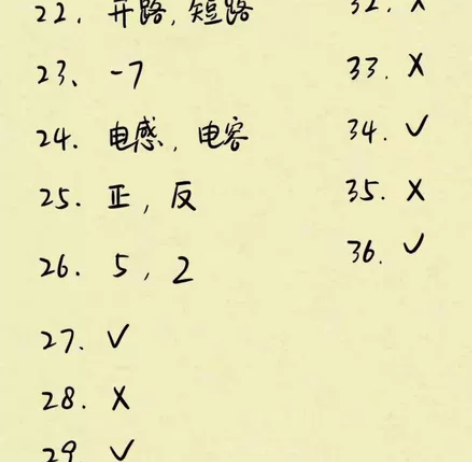 22. 开路, 短路
23、-7
24. 电感, 电容
25. 正, 反
26. 5, 2
27. ✓
28. X
29 ✓
32. X
33. X
34. ✓
35. X
36. ✓